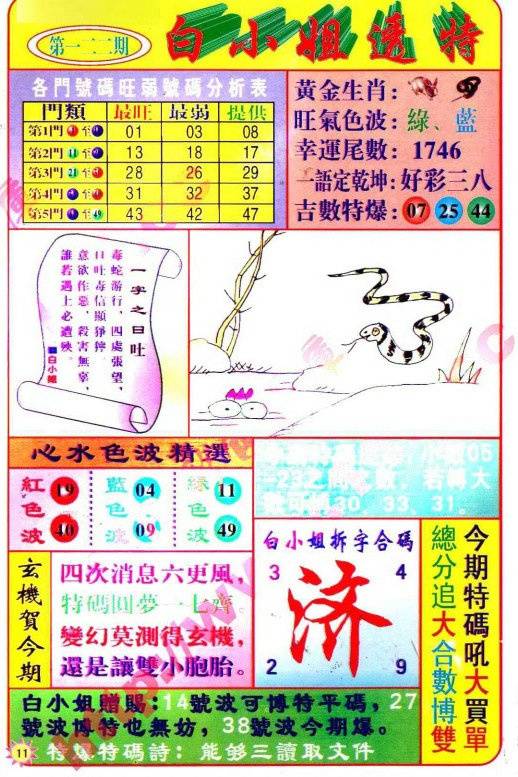 第一二二期
白小姐透特
各門號碼旺弱號碼分析表
門類 最旺 最弱 提供
第1門 至 01 03 08
第2門 至 13 18 17
第3門 至 28 26 29
第4門 至 31 32 37
第5門 至49 43 42 47
黃金生肖:
旺氣色波: 綠、藍
幸運尾數: 1746
一語定乾坤: 好彩三八
吉數特爆: 07 25 44
一字之曰吐
毒蛇游行,四處張望,
口吐毒信顯猙獰,
意欲作惡,殺害無辜,
誰若遇上必遭殃。
白小姐
心水色波精選
紅色波 19 40
藍色波 04 09
綠色波 11 49
小 05
-23之間之數,若轉大
數可博30、33、31。
玄機賀今期
四次消息六更風,
特碼圓夢一七齊。
變幻莫測得玄機,
還是讓雙小胞胎。
白小姐拆字合碼
3 4
济
2 9
今期特碼吼大買單
總分追大合數博雙
白小姐贈賜:14號波可博特平碼,27
號波博特也無妨,38號波今期爆。
特爆特碼詩: 能够三讀取文件
11